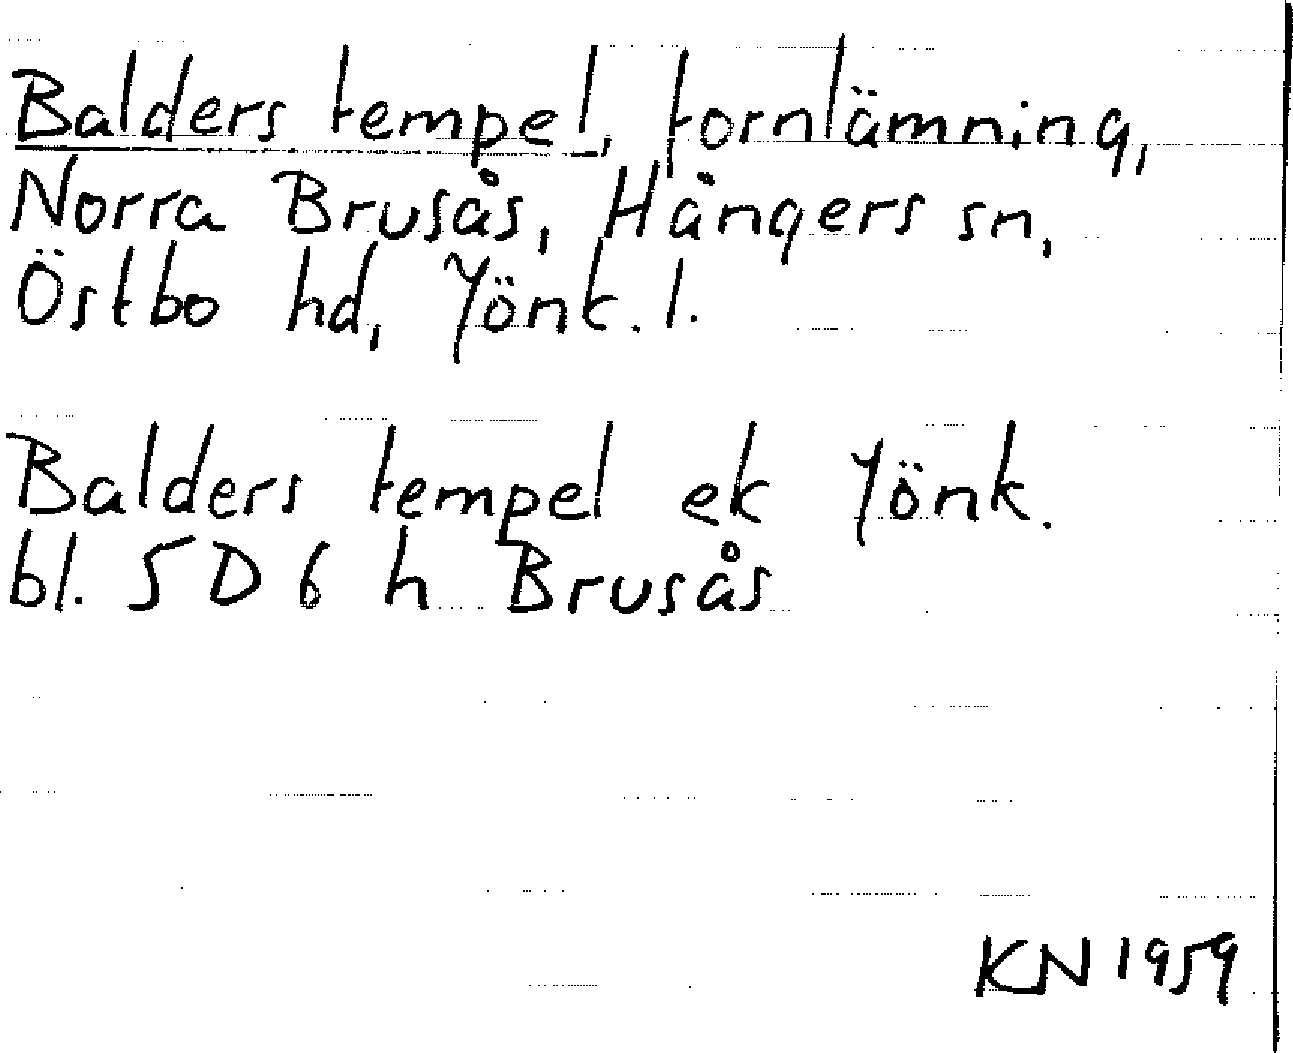 Balders tempel, fornlämning,
Norra Brusås, Hångers sn,
Östbo hd, Jönk. l.
Balders tempel ek Jönk.
bl. 5D6h Brusås
KN 1959